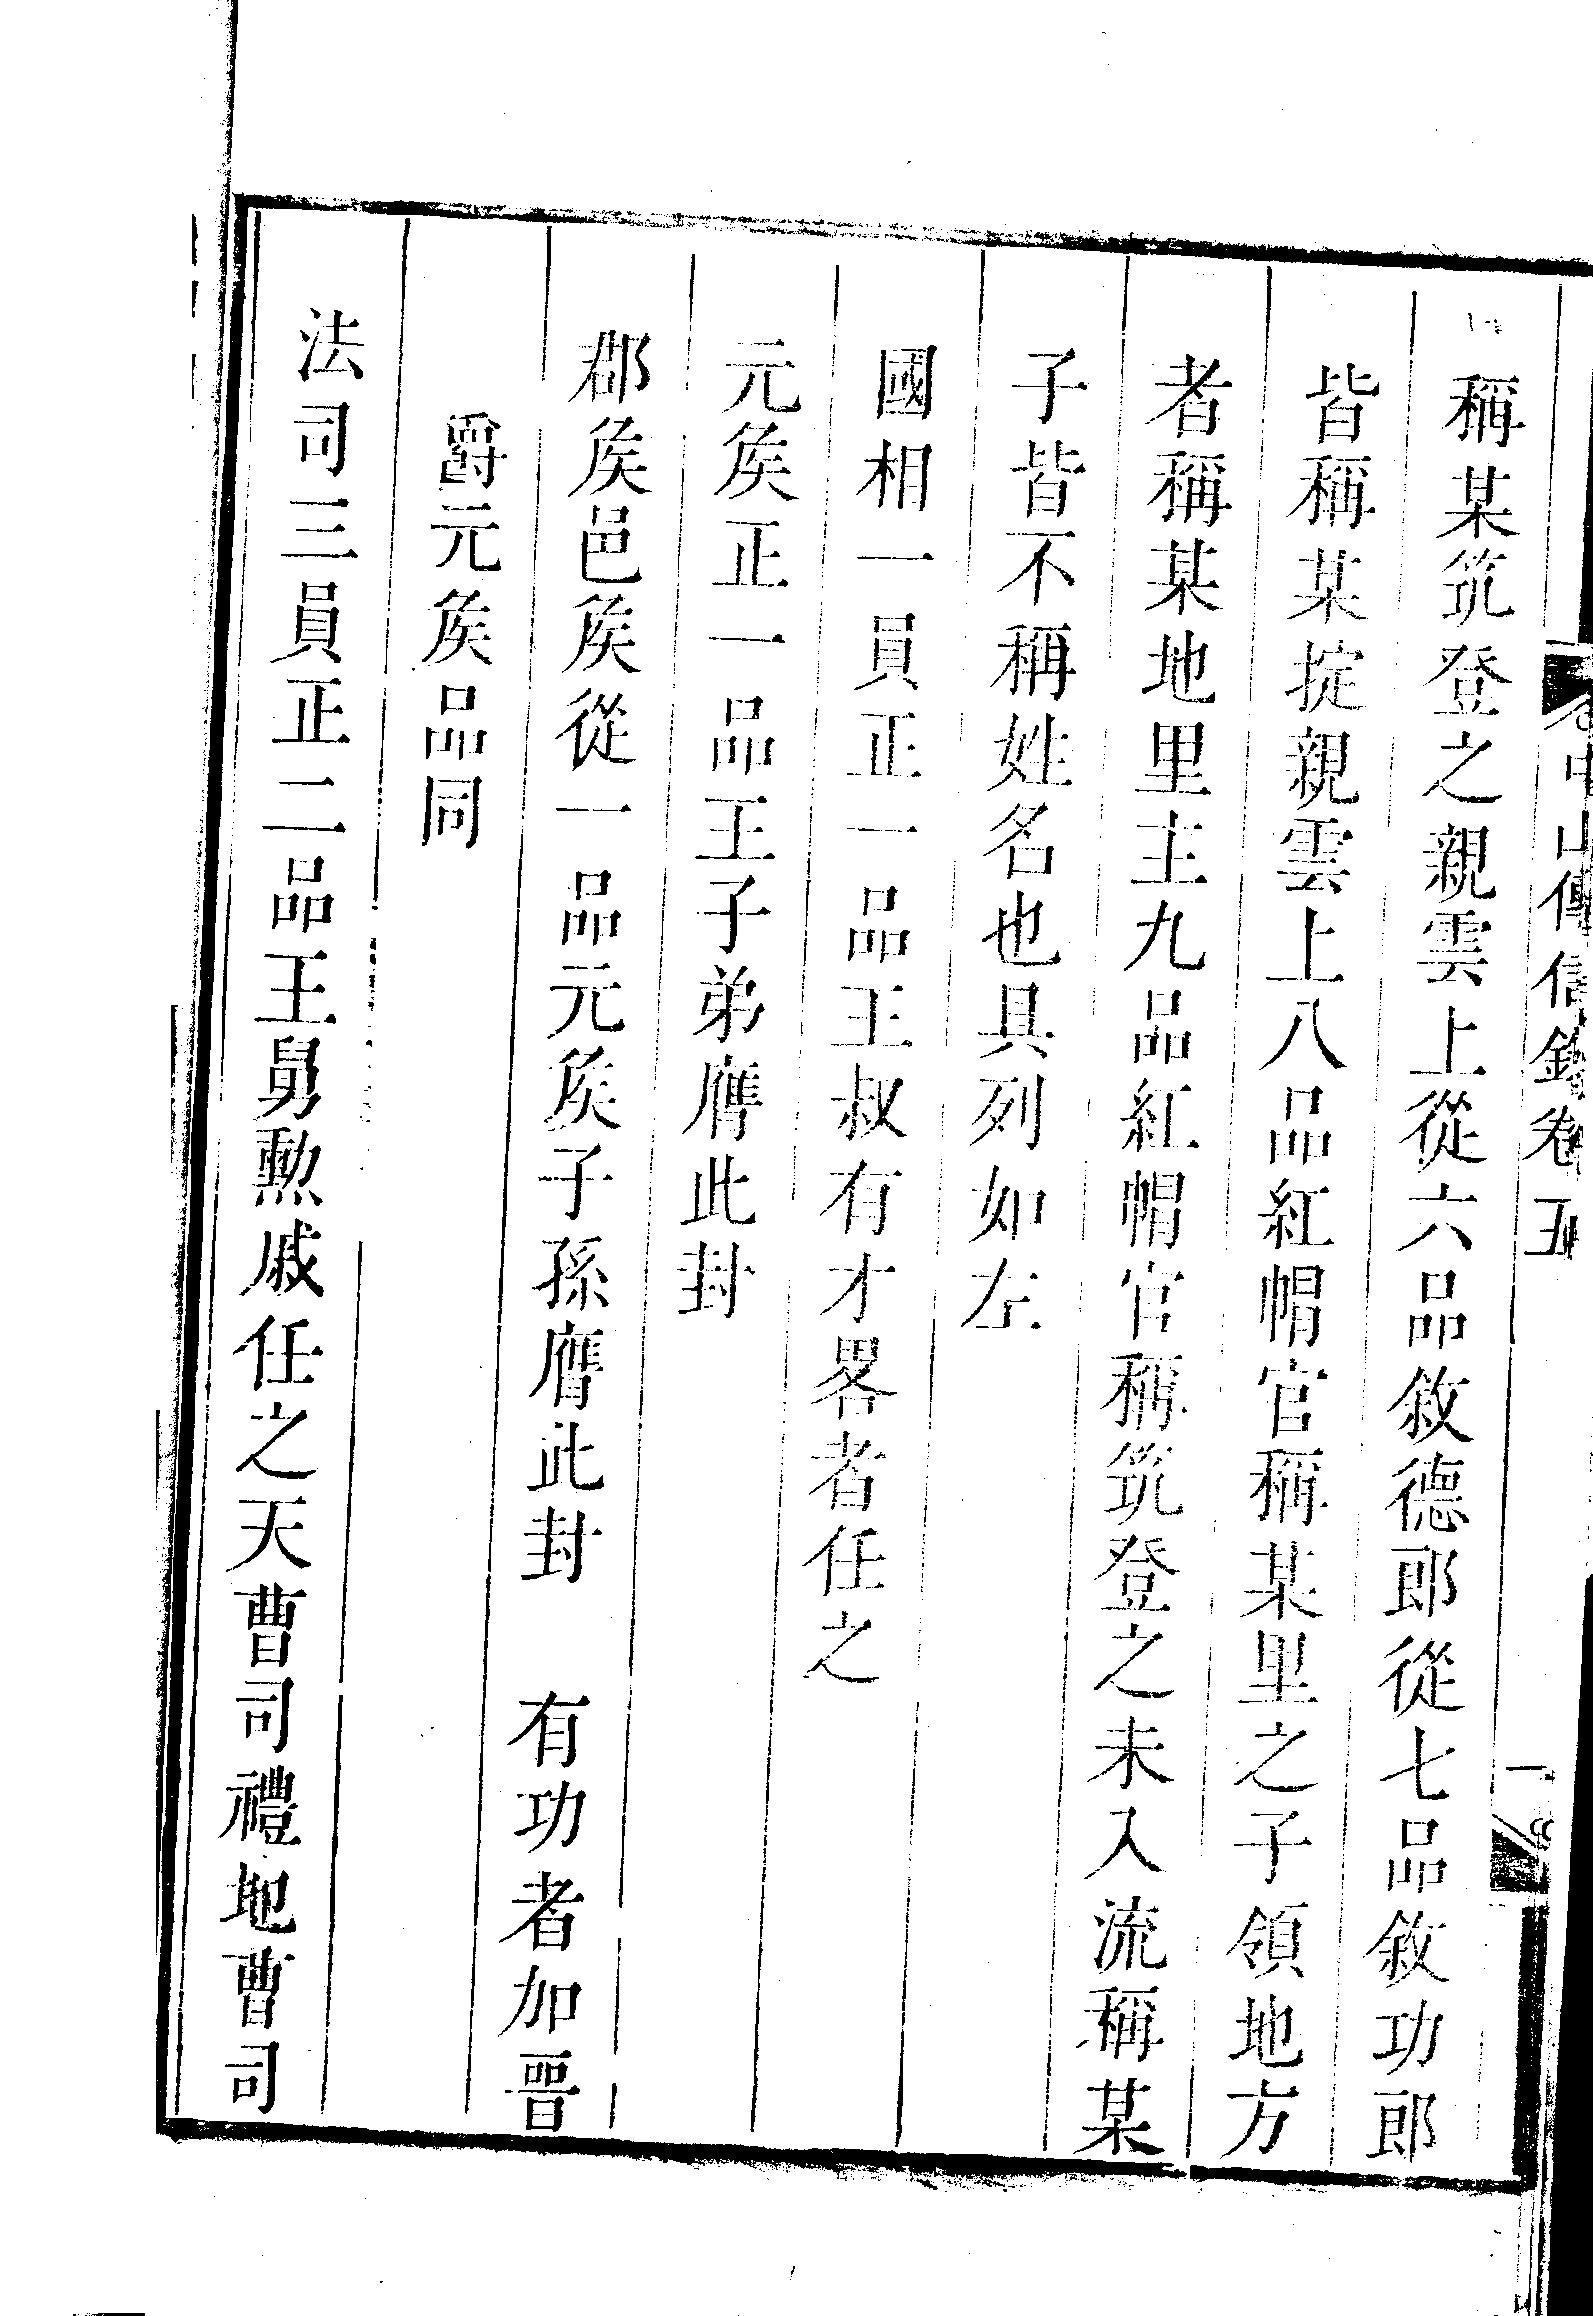 中山傳信錄卷五 一
稱某筑登之親雲上從六品敘德郎從七品敘功郎
皆稱某掟親雲上八品紅帽官稱某里之子領地方
者稱某地里主九品紅帽官稱筑登之未入流稱某
子皆不稱姓名也具列如左
國相一員正一品王叔有才畧者任之
元矦正一品王子弟膺此封
郡矦邑矦從一品元矦子孫膺此封　有功者加晉
爵元矦品同
法司三員正二品王舅勲戚任之天曹司禮地曹司